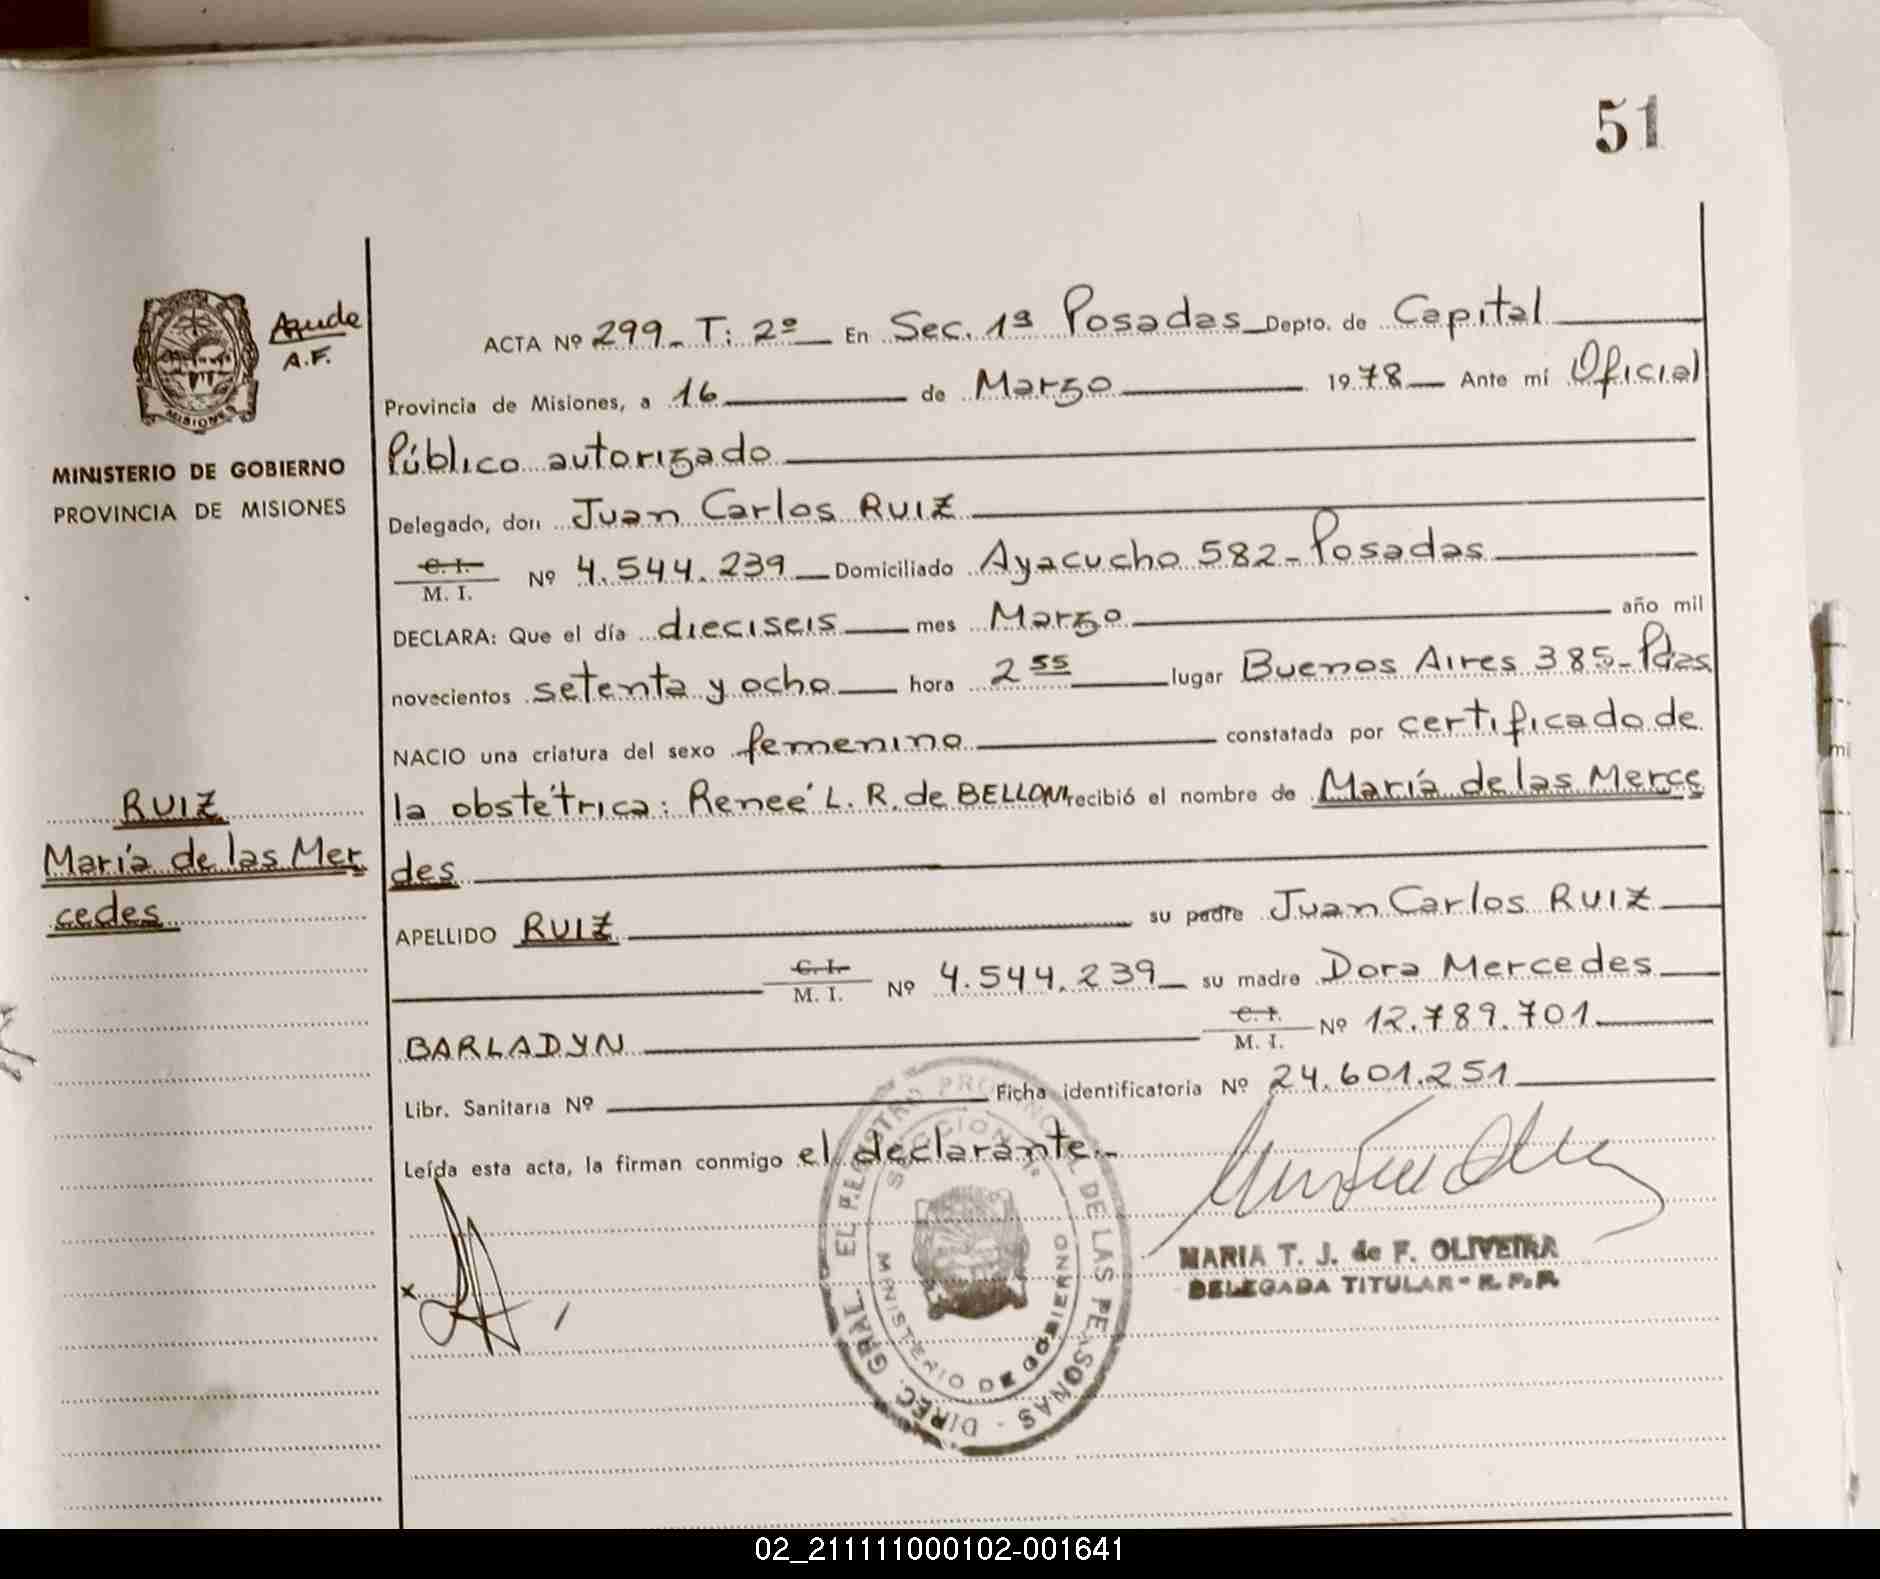 51
Ayude
A.F.
MISIONES
MINISTERIO DE GOBIERNO
PROVINCIA DE MISIONES
RUIZ
María de las Mer
cedes
ACTA Nº 299_ T: 2º En Sec. 1ª Posadas Depto. de Capital
Provincia de Misiones, a 16 de Marzo 1978 Ante mí Oficial
Público autorizado
Delegado, don Juan Carlos RUIZ
C. I.
M. I. Nº 4.544.239 Domiciliado Ayacucho 582-Posadas
DECLARA: Que el día dieciseis mes Marzo año mil
novecientos setenta y ocho hora 2 55 lugar Buenos Aires 385-Pdas
NACIO una criatura del sexo femenino constatada por certificado de
la obstétrica: Reneé L. R. de BELLONI recibió el nombre de María de las Merce
des
APELLIDO RUIZ su padre Juan Carlos RUIZ
C. I.
M. I. Nº 4.544.239 su madre Dora Mercedes
BARLADYN C. I.
M. I. Nº 12.789.701
Libr. Sanitaria Nº Ficha identificatoria Nº 24.601.251
Leída esta acta, la firman conmigo el declarante.-
x
DIREC. GRAL. DE LAS PERSONAS
MINISTERIO DE GOBIERNO
MARIA T. J. de F. OLIVEIRA
DELEGADA TITULAR - R. P. P.
mi
02_211111000102-001641